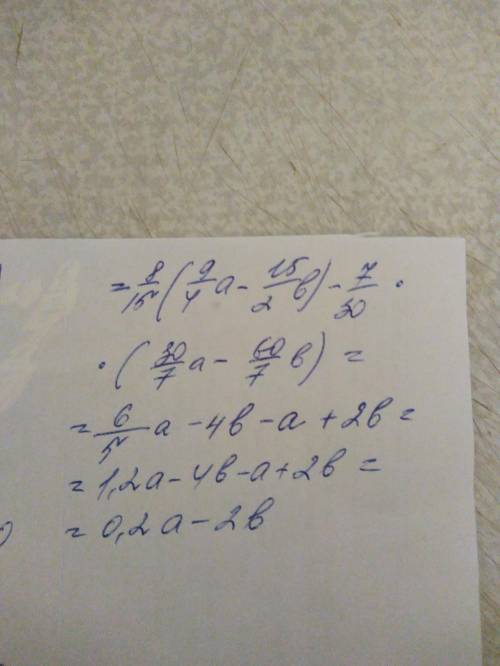 = 8/15 (9/4 a - 15/2 b) - 7/30 ·
· (30/7 a - 60/7 b) =
= 6/5 a - 4b - a + 2b =
= 1,2a - 4b - a + 2b =
= 0,2a - 2b